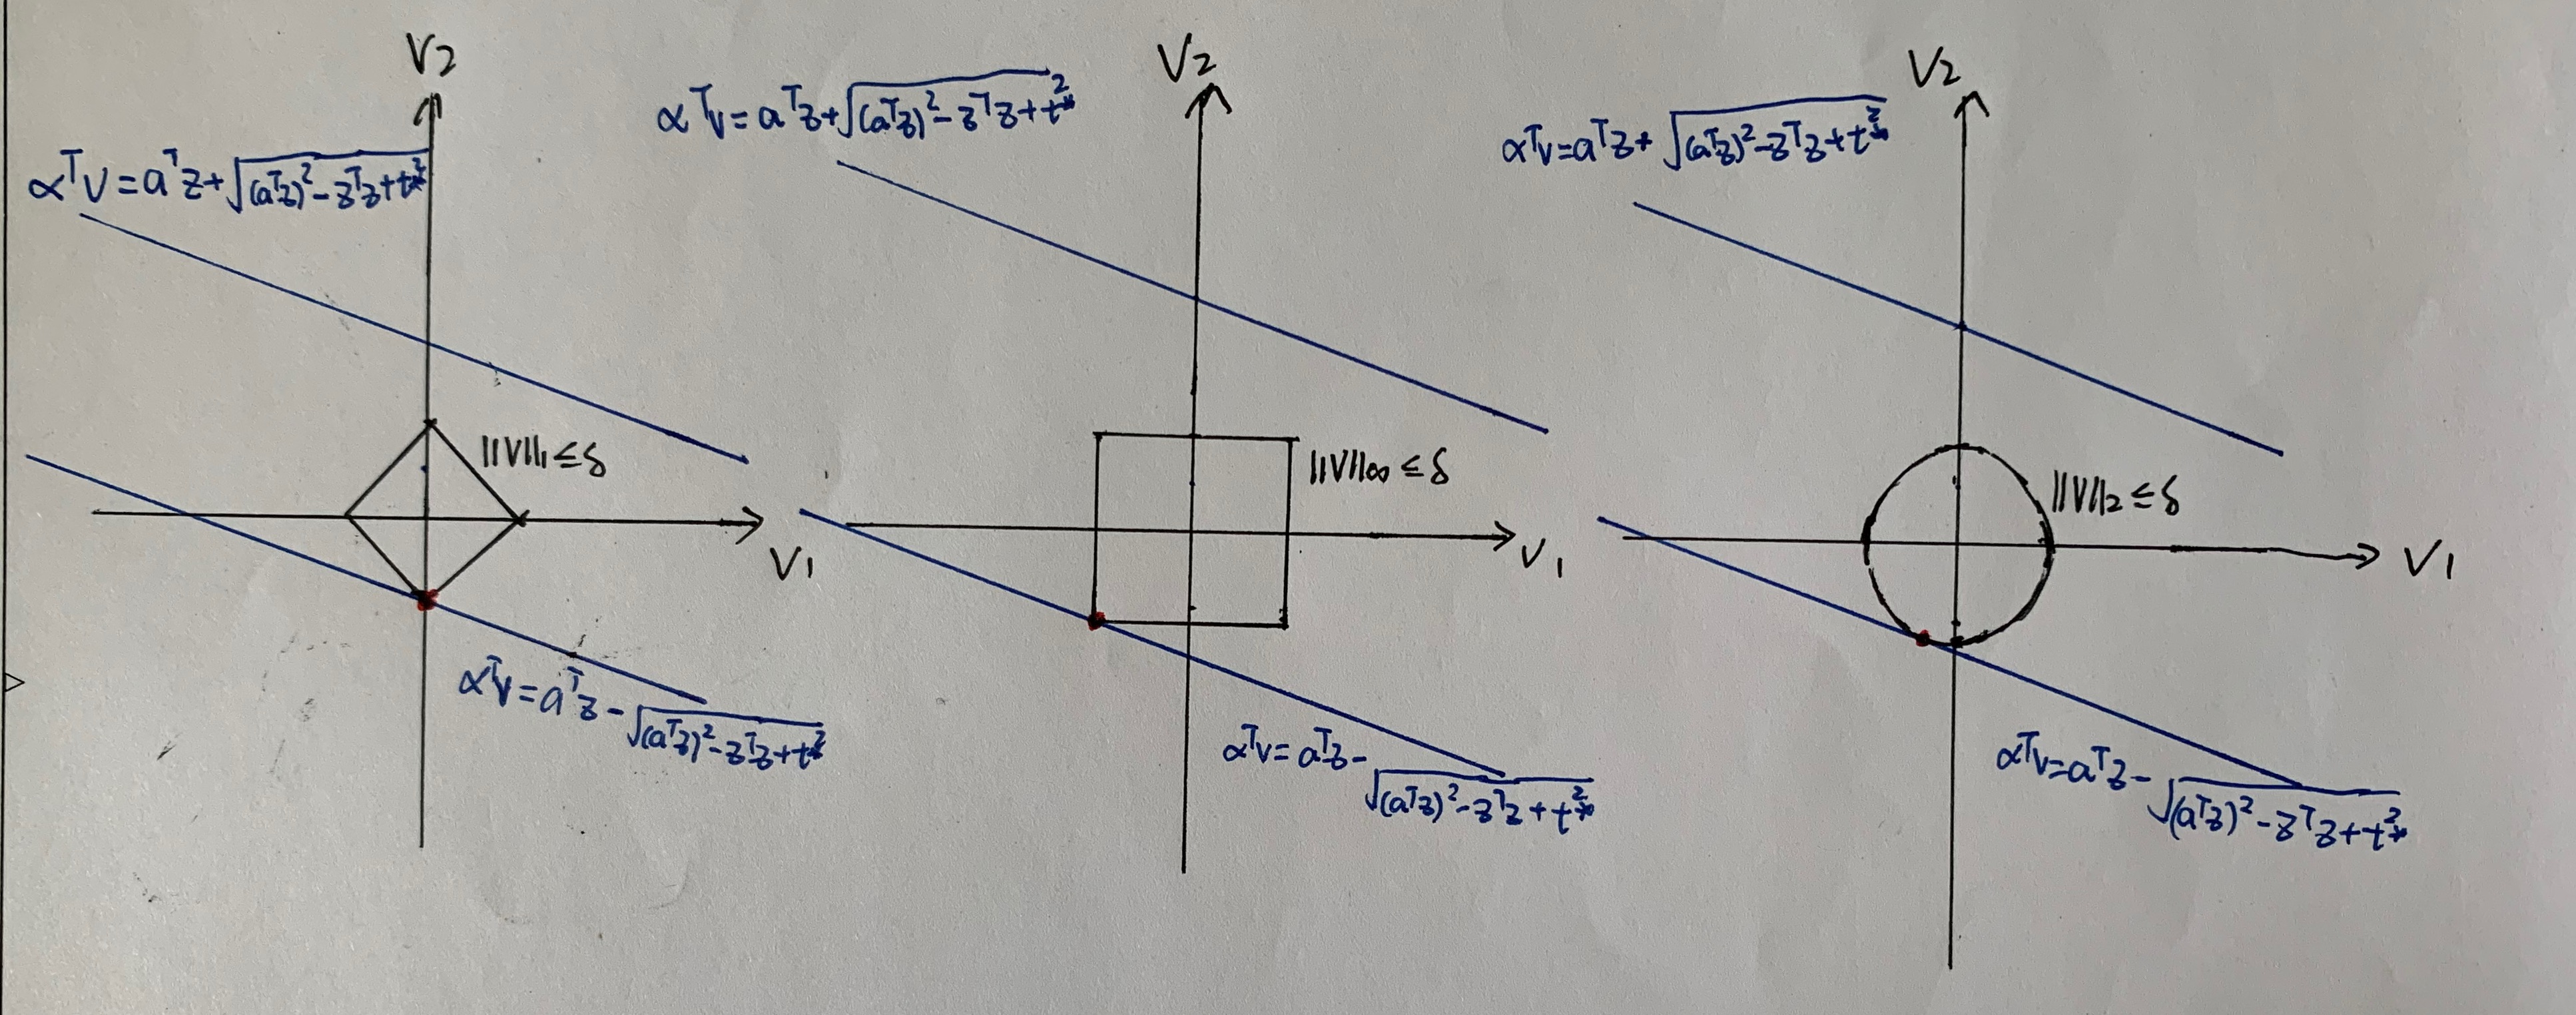 V2
αᵀV = aᵀz + √((aᵀz)² - zᵀz + t*²)
||V||₁ ≤ δ
V1
αᵀV = aᵀz - √((aᵀz)² - zᵀz + t*²)
V2
αᵀV = aᵀz + √((aᵀz)² - zᵀz + t*²)
||V||∞ ≤ δ
V1
αᵀV = aᵀz -
√((aᵀz)² - zᵀz + t*²)
V2
αᵀV = aᵀz + √((aᵀz)² - zᵀz + t*²)
||V||₂ ≤ δ
V1
αᵀV = aᵀz -
√((aᵀz)² - zᵀz + t*²)